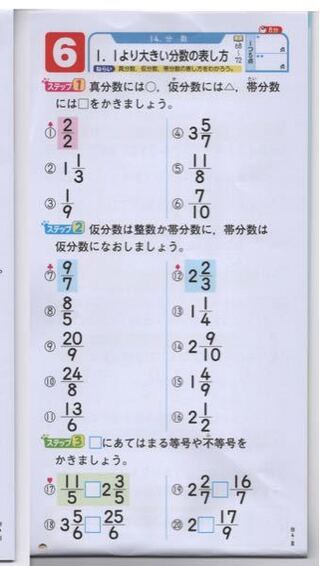 6
14. 分数
1. 1より大きい分数の表し方
ねらい 真分数、仮分数、帯分数の表し方をわかろう。
68〜72
8分
1つ5点
点
ステップ1 真分数には○、仮分数には△、帯分数
には□をかきましょう。
① 2/2 ④ 3 5/7
② 1 1/3 ⑤ 11/8
③ 1/9 ⑥ 7/10
ステップ2 仮分数は整数か帯分数に、帯分数は
仮分数になおしましょう。
⑦ 9/7 ⑫ 2 2/3
⑧ 8/5 ⑬ 1 1/4
⑨ 20/9 ⑭ 2 9/10
⑩ 24/8 ⑮ 1 4/9
⑪ 13/6 ⑯ 2 1/2
ステップ3 □にあてはまる等号や不等号を
かきましょう。
⑰ 11/5 □ 2 3/5 ⑲ 2 2/7 □ 16/7
⑱ 3 5/6 □ 25/6 ⑳ 2 □ 17/9